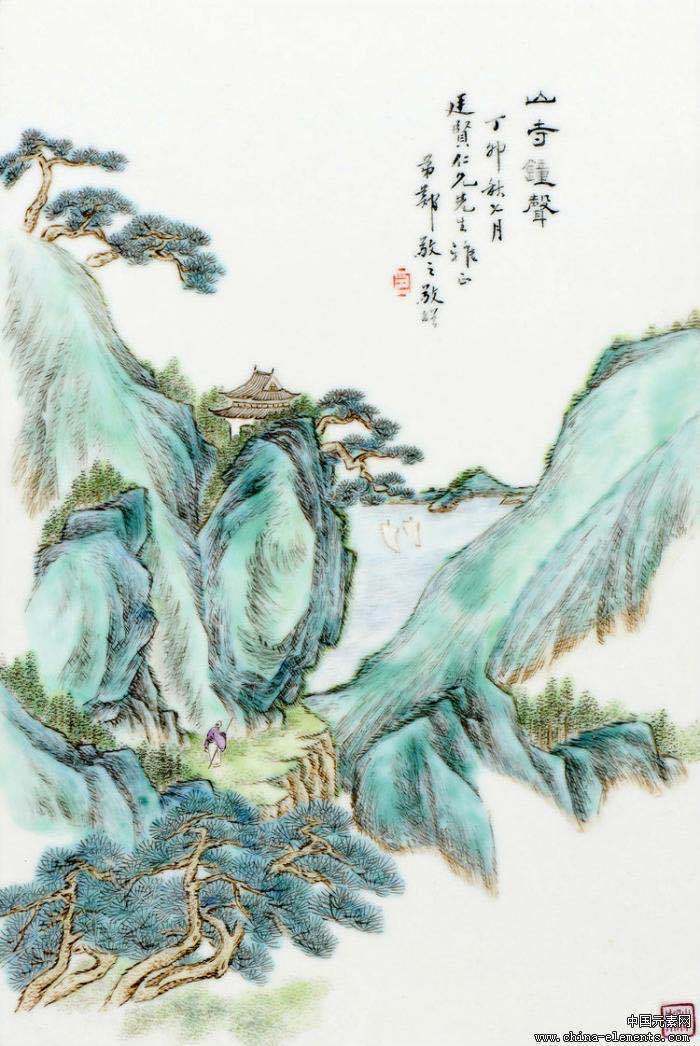 山寺鐘聲
丁卯秋七月
廷賢仁兄先生雅正
弟鄭敬之敬
中国元素网
www.china-elements.com